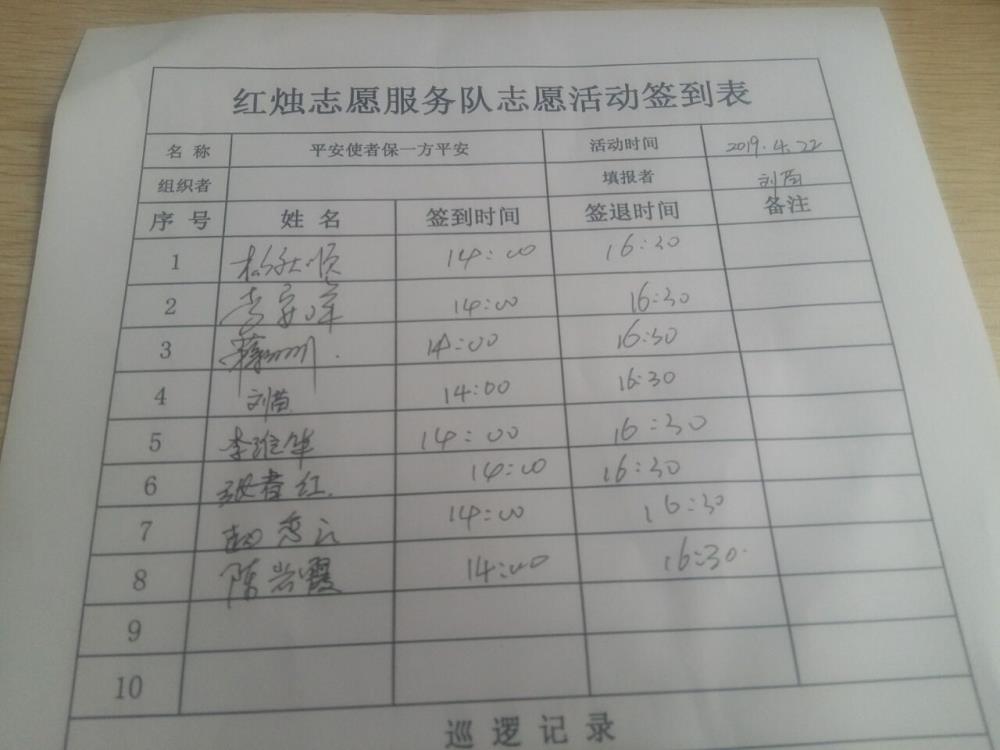 红烛志愿服务队志愿活动签到表
名 称 平安使者保一方平安 活动时间 2019.4.22
组织者 填报者 刘苗
序 号 姓 名 签到时间 签退时间 备注
1 14:00 16:30
2 14:00 16:30
3 14:00 16:30
4 刘苗 14:00 16:30
5 李维华 14:00 16:30
6 红 14:00 16:30
7 赵 云 14:00 16:30
8 陈岩霞 14:00 16:30
9
10
巡 逻 记 录